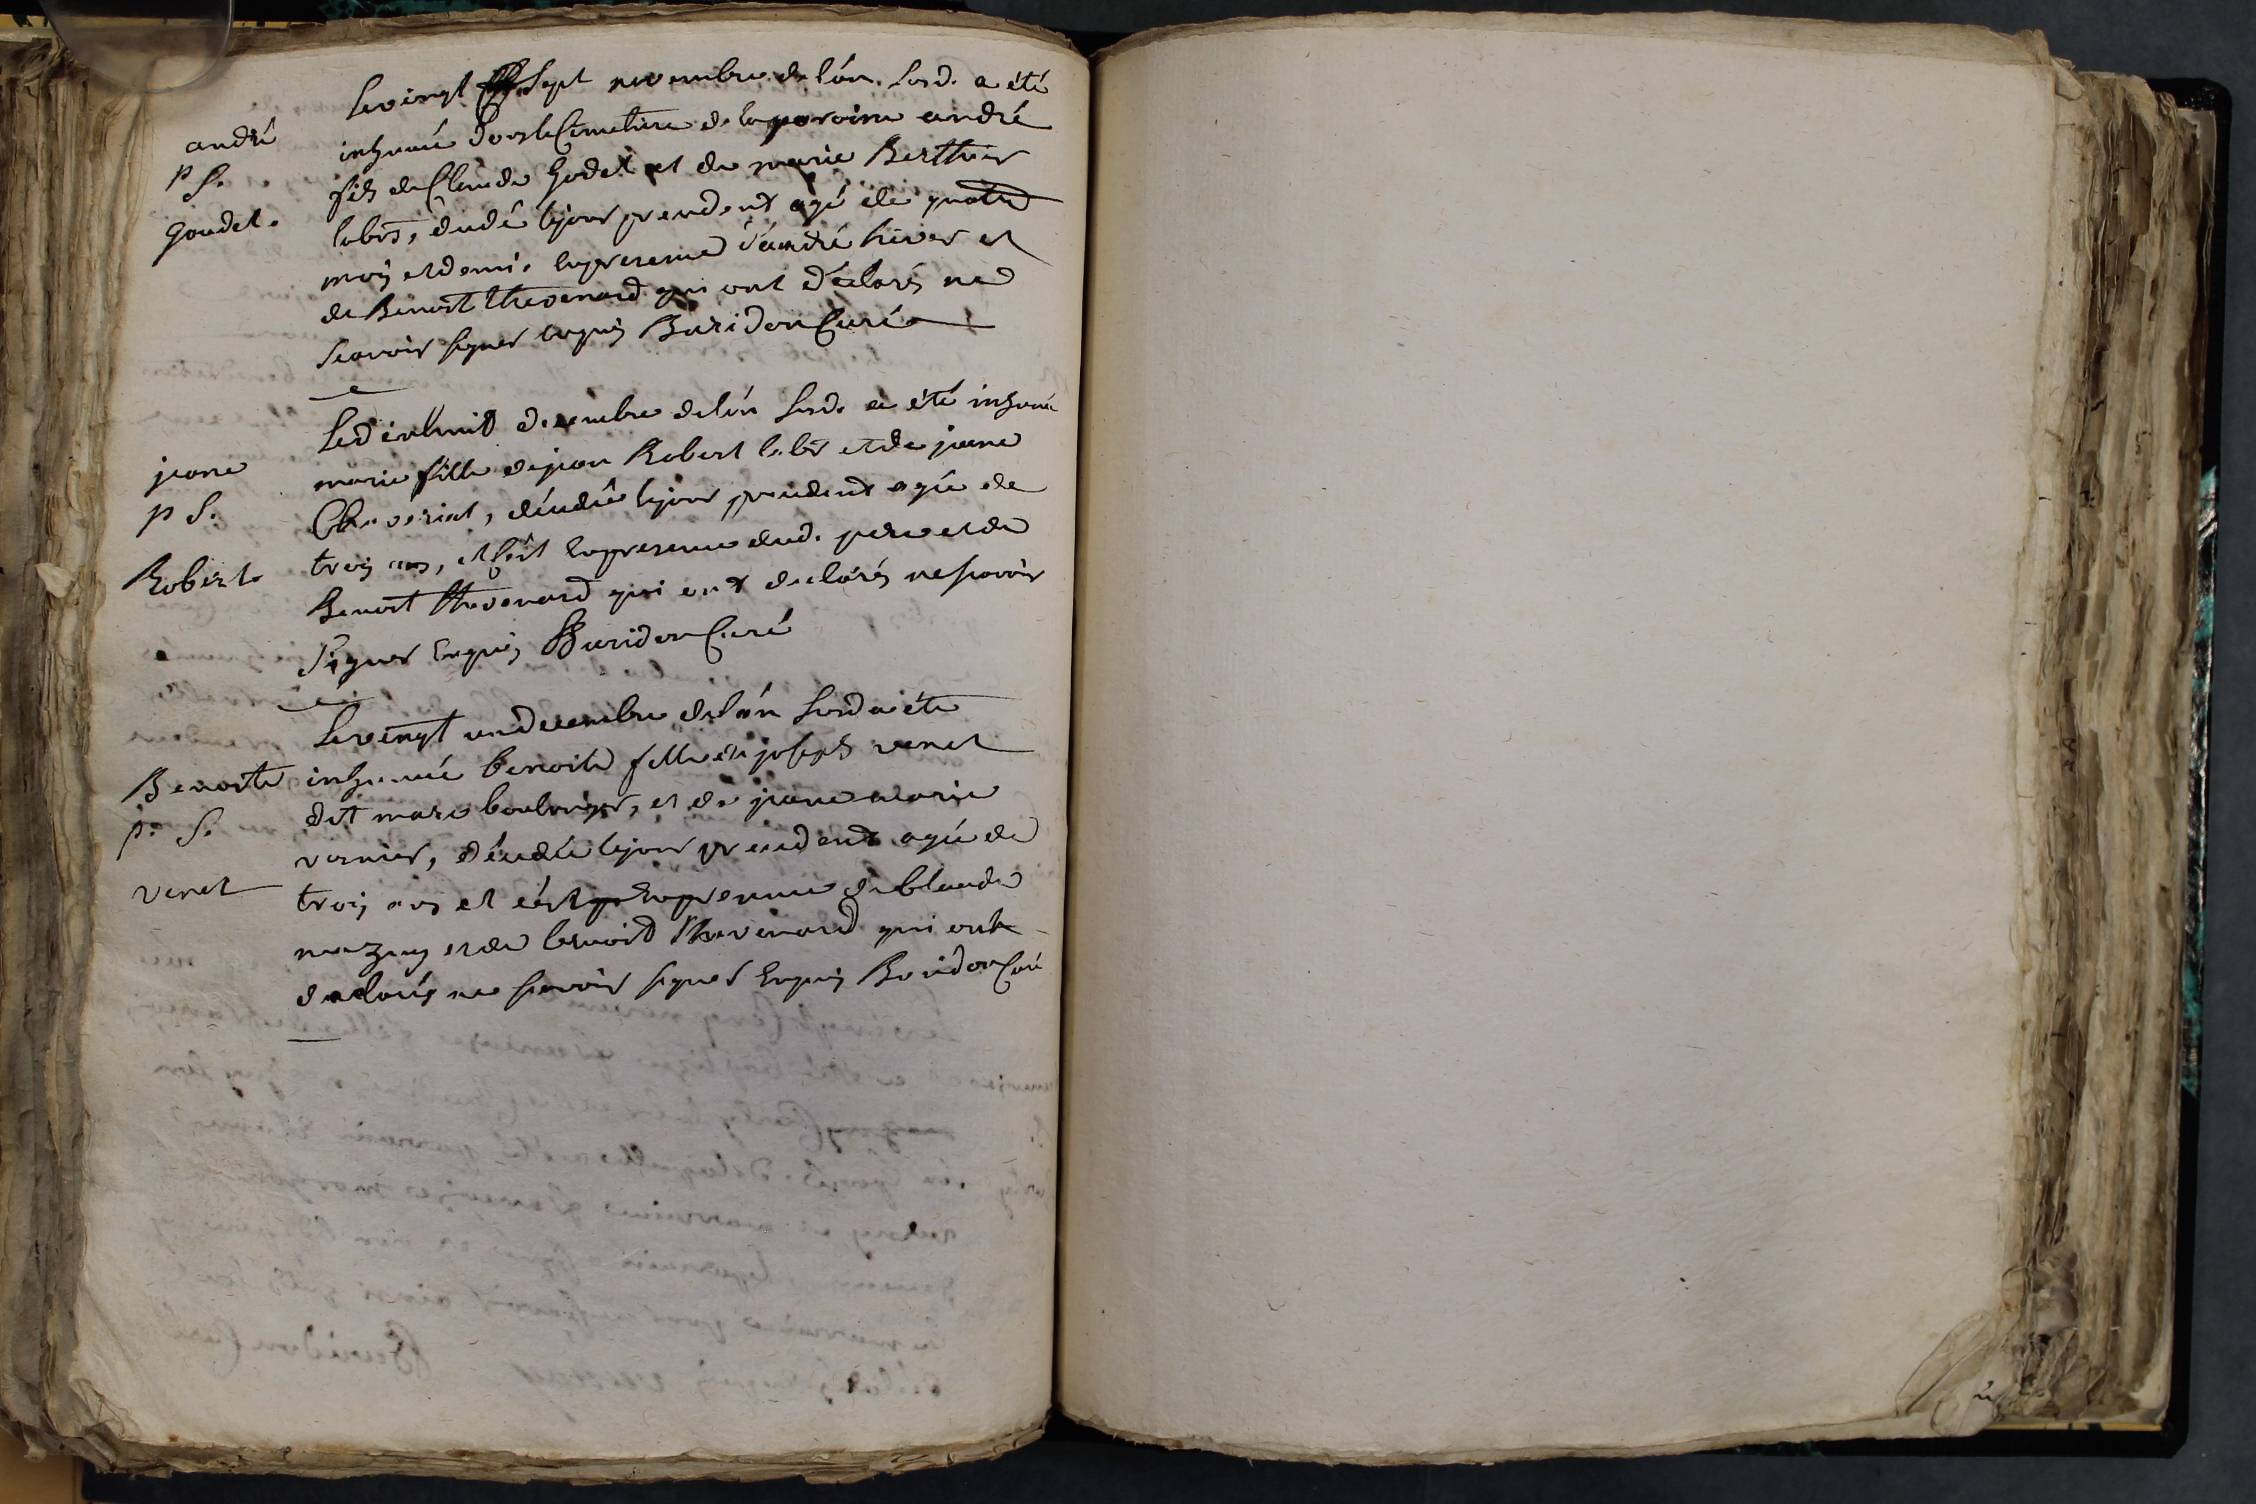 Le vingt Sept novembre de lán. susd. a été
andré
inhumé dans le Cimetiere de la paroisse andré
p S.
fils de Claude Godet et de marie Berthier
goudet.
labrs, décédé le jour precedent agé de quatre
mois et demi. en presence d'andré hiver et
de Benoit thevenard qui ont déclarés ne
scavoir signer enquis Buridon Curé
Le dixhuit decembre de lán susd. a été inhumé
jeane
marie fille de jean Robert labr et de jeane
p S.
Cheveriat, décédée le jour precedent agée de
Robert.
trois ans, et ce en presence dud. pere et de
Benoit thevenard qui ont declarés ne scavoir
signer enquis Buridon Curé
Le vingt un decembre de lán susd a été
Benoite
inhumée benoite fille de joseph venet
p. S.
dit mare boulanger, et de jeane marie
vernier, décédée le jour precedent agée de
venet
trois ans et ce en presence de Claude
mazuy et de benoit thevenard qui ont
declarés ne scavoir signer enquis Buridon Curé